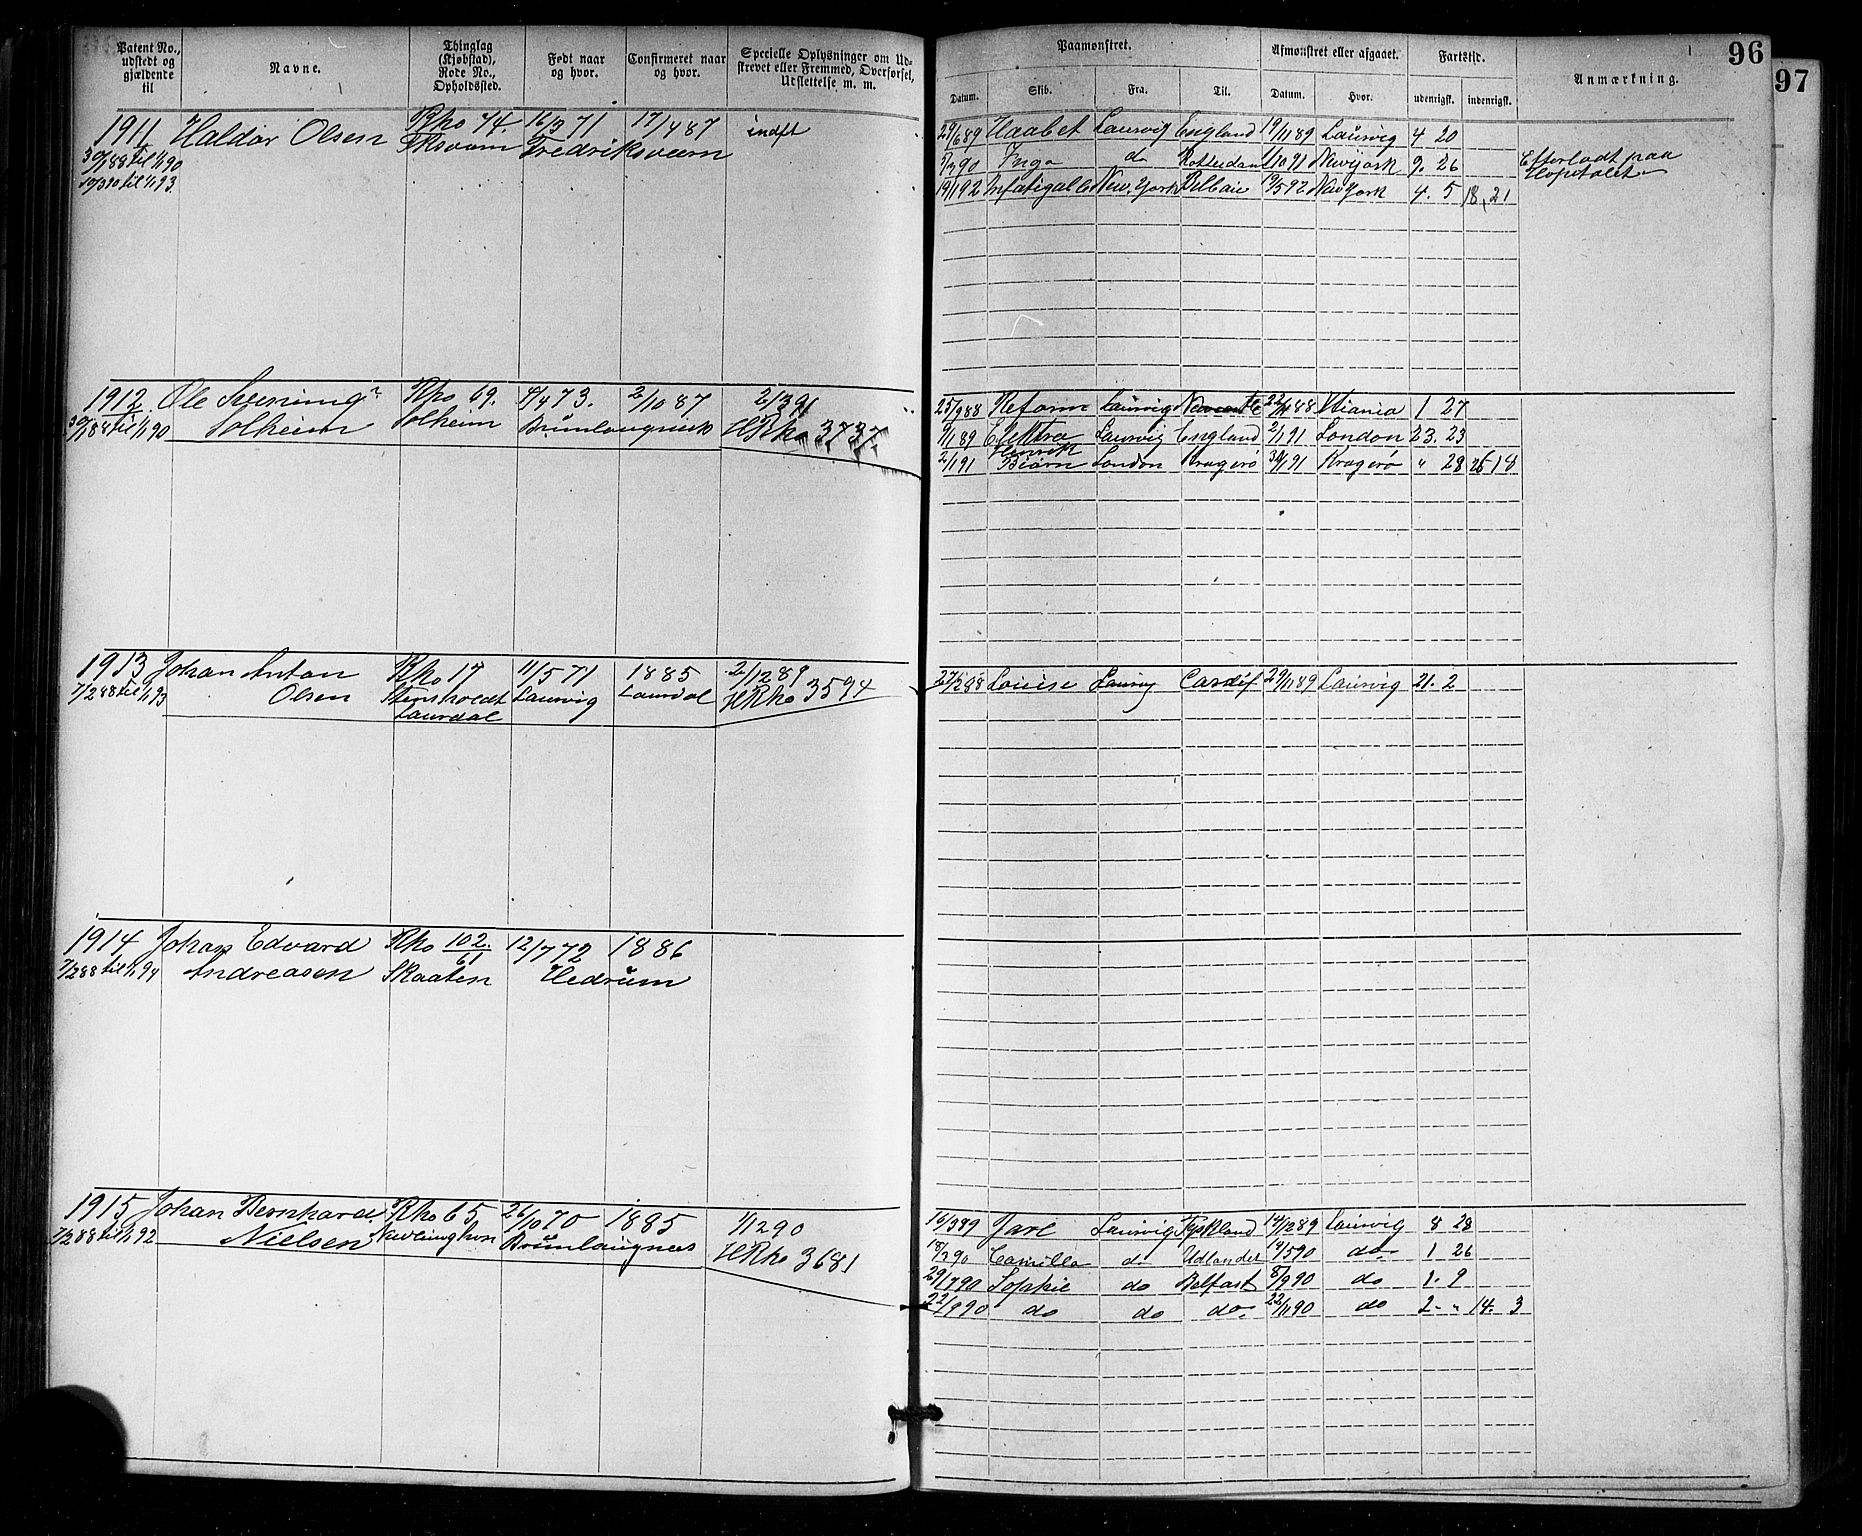 Patent No., udstedt og gjældende til
Navne.
Thinglag (Kjøbstad), Rode No., Opholdssted.
Født naar og hvor.
Confirmeret naar og hvor.
Specielle Oplysninger om Udskrevet eller Fremmed, Overførsel, Udslettelse m. m.
1911 Haldor Olsen Rho 74. 16/3 71 17/4 87 indft
30/1 88 til 1/1 90 Fredriksværn
10/3 90 til 1/1 93
1912 Ole Rho 69. 4/4 73. 2/10 87 2/3 91
30/1 88 til 1/1 90 Solheim Solheim Brunlaugnæs HRho 3737
1913 Johan Anton Rho 17 11/5 71 1885 2/12 89
7/2 88 til 1/1 93 Olsen Laurvig Laurdal HRho 3594
Laurdal
1914 Johan Edvard Rho 102/61 12/7 72 1886
7/2 88 til 1/1 94 Andreasen Skaaten Hedrum
1915 Johan Bernhard Rho 65 26/10 70 1885 1/12 90
7/2 88 til 1/1 92 Nielsen Brunlaugnæs HRho 3681
96
97
Paamønstret.
Afmønstret eller afgaaet.
Fartstid.
Anmærkning.
Datum. Skib. Fra. Til. Datum. Hvor. udenrigsk. indenrigsk.
29/6 89 Haabet Laurvig England 19/11 89 Laurvig 4 20
Inga do Rotterdam Newyork 9. 26 Efterladt paa
Hospitalet
19/1 92 Infatigable New. York 19/5 92 Newyork 4. 5 18, 21
25/9 88 Reform Laurvig 1 27
9/1 89 Elektra Laurvig England 2/1 91 London 23. 23
Henrik
2/1 91 Biørn London Kragerø 30/1 91 Kragerø " 28 26 18
Louise Laurvig Cardif 29/11 89 Laurvig 21. 2
16/3 89 Jarl Laurvig Tyskland 14/12 89 Laurvig 8 28
18/3 90 Camilla do Udlandet 14/5 90 do 1 26
29/7 90 Sophie do Belfast 8/9 90 do 1. 9
22/9 90 do do do 22/11 90 do 2. " 14. 3